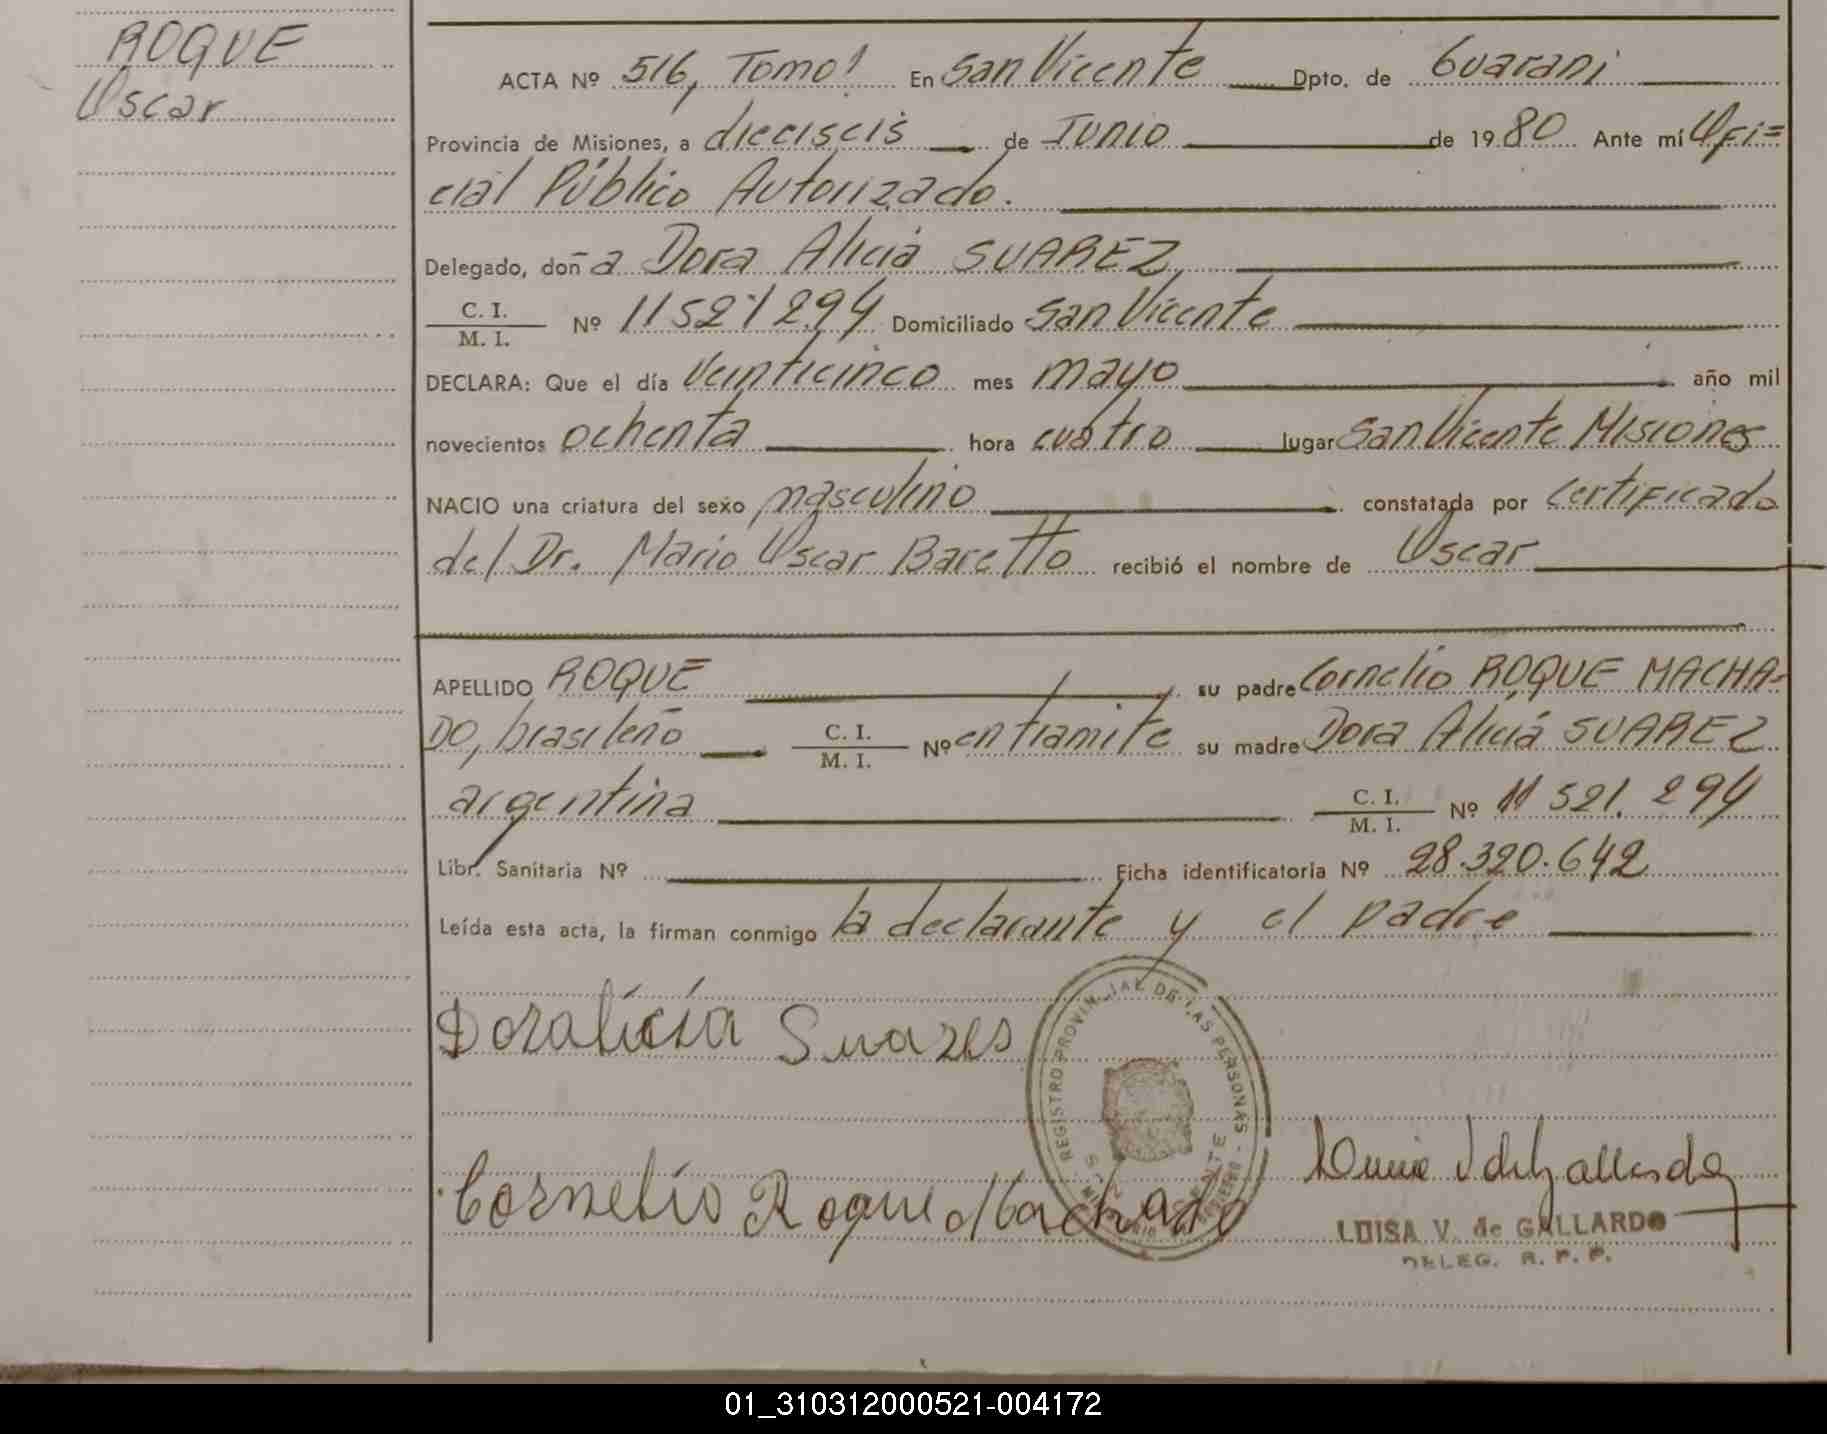 ROQUE
Oscar
ACTA Nº 516, Tomo 1 En San Vicente Dpto. de Guarani
Provincia de Misiones, a dieciseis de Junio de 1980 Ante mí Ofi=
cial Público Autorizado.
Delegado, doña Dora Alicia SUAREZ,
C. I.
M. I. Nº 11521294 Domiciliado San Vicente
DECLARA: Que el día Veinticinco mes mayo año mil
novecientos ochenta hora cuatro lugar San Vicente Misiones
NACIO una criatura del sexo masculino constatada por Certificado
del Dr. Mario Oscar Baretto recibió el nombre de Oscar
APELLIDO ROQUE su padre Cornelio ROQUE MACHA-
DO, brasileño C. I.
M. I. Nº en tramite su madre Dora Alicia SUAREZ
argentina C. I.
M. I. Nº 11 521. 294
Libr. Sanitaria Nº Ficha identificatoria Nº 28.320.642
Leída esta acta, la firman conmigo la declarante y el padre
Doralicia Suares
REGISTRO PROVINCIAL DE LAS PERSONAS
Cornelio Roque Machado
LUISA V. de GALLARDO
DELEG. R. P. P.
01_310312000521-004172